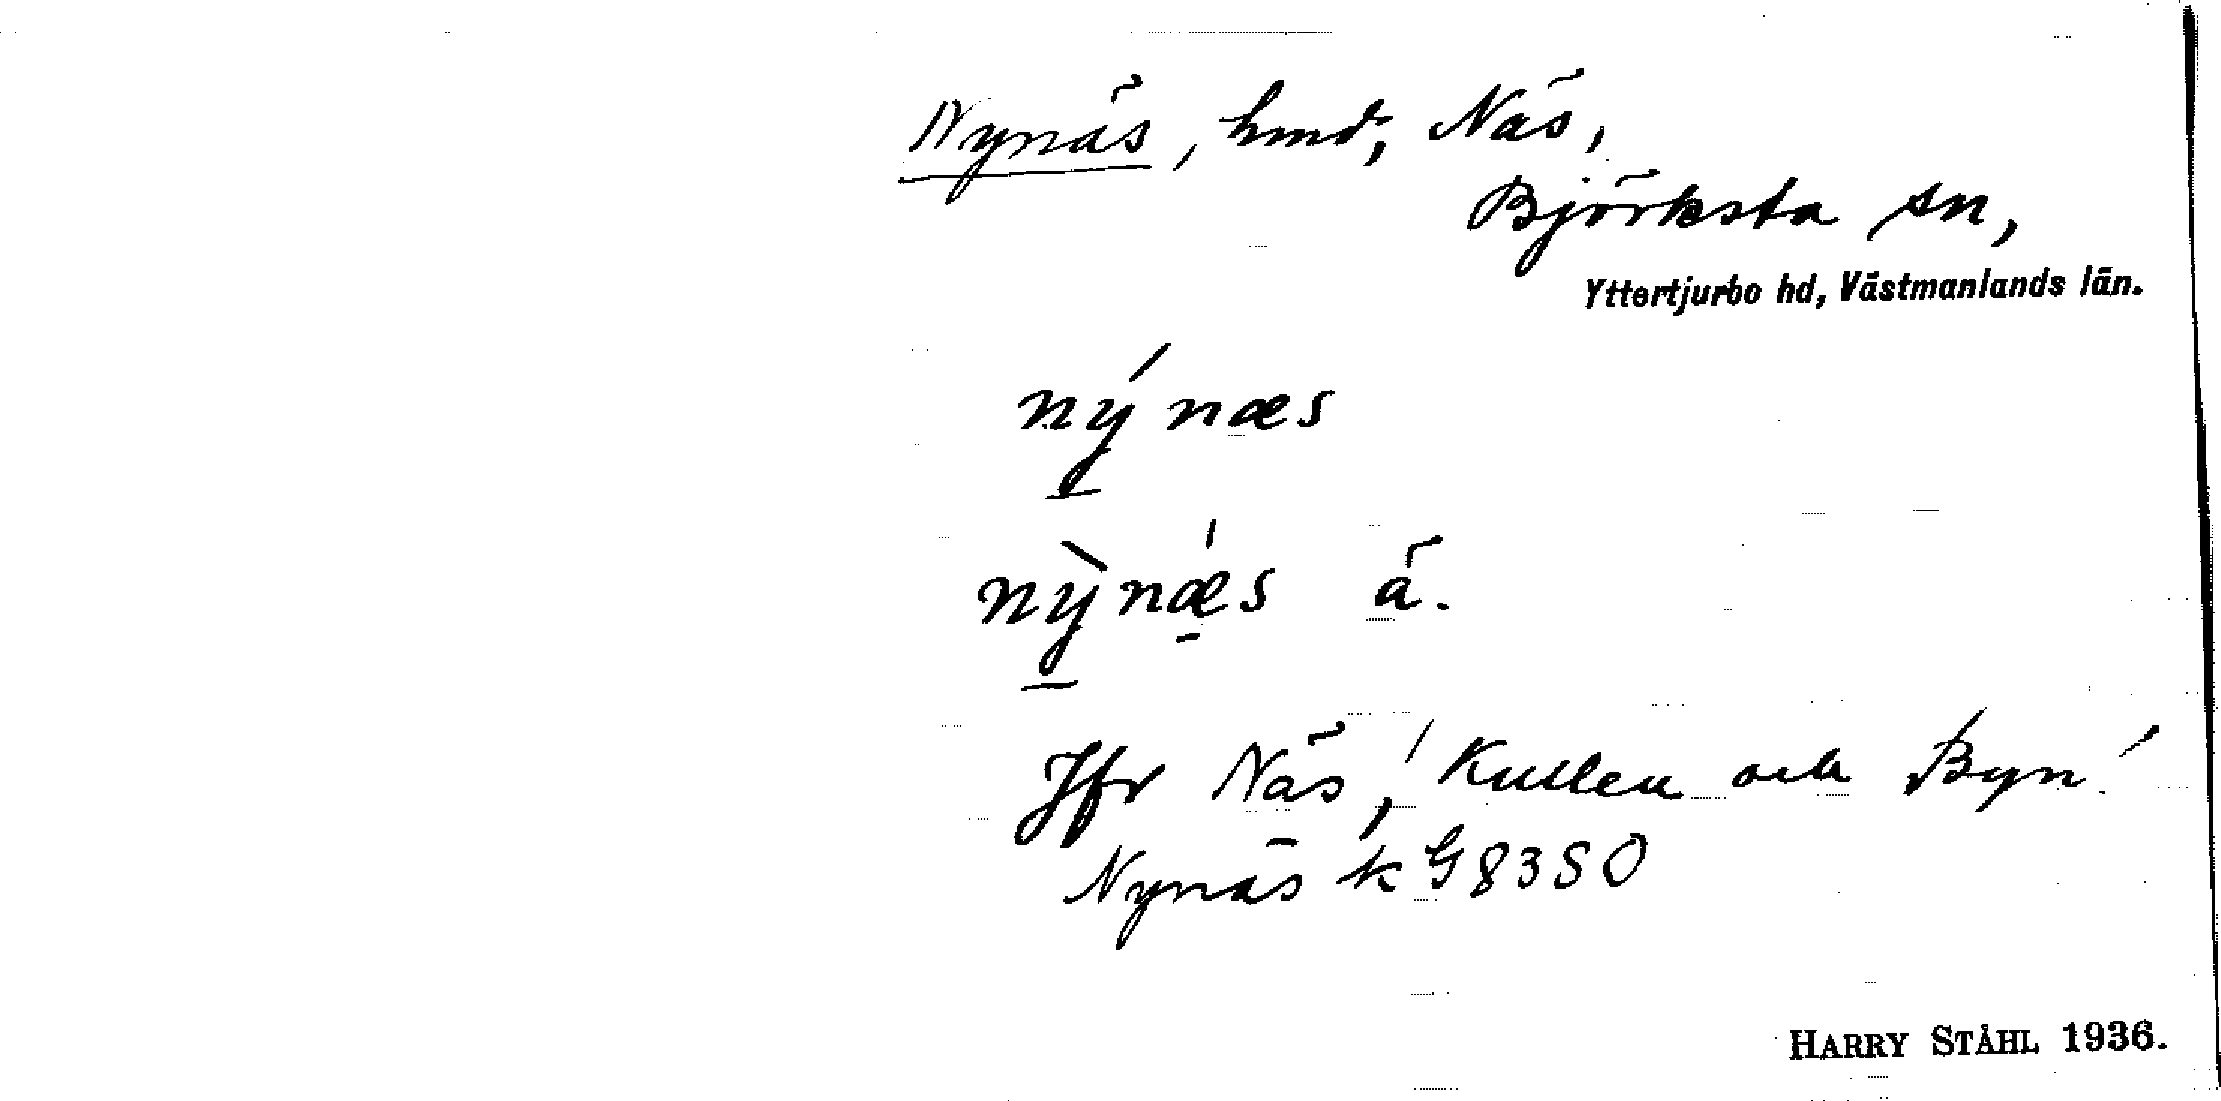 Nynäs, hmd, Näs,
Björksta sn,
Yttertjurbo hd, Västmanlands län.
nýnæs
nỳnæ̍s ä.
Jfr Näs, Kullen och Byn!
Nynäs k G 83 SO
HARRY STÅHL 1936.